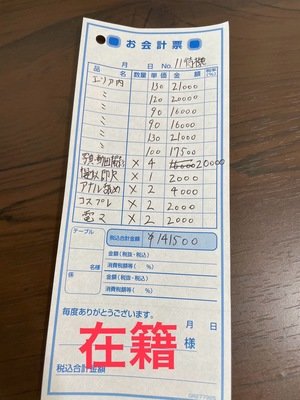 お会計票
月 日 No. 11
品名 数量 単価 金額 税率(%)
エリア内 130 21000
〃 120 20000
〃 90 16000
〃 90 16000
〃 130 21000
〃 100 17500
写真・動画撮影 × 4 16000 20000
即尺 × 1 2000
アナル舐め × 2 4000
コスプレ × 2 2000
電マ × 2 2000
テーブル 税込合計金額 ¥141500
金額(税抜・税込)
名様 消費税額等( %)
係 金額(税抜・税込)
消費税額等( %)
毎度ありがとうございます。
月 日
在籍
様
税込合計金額